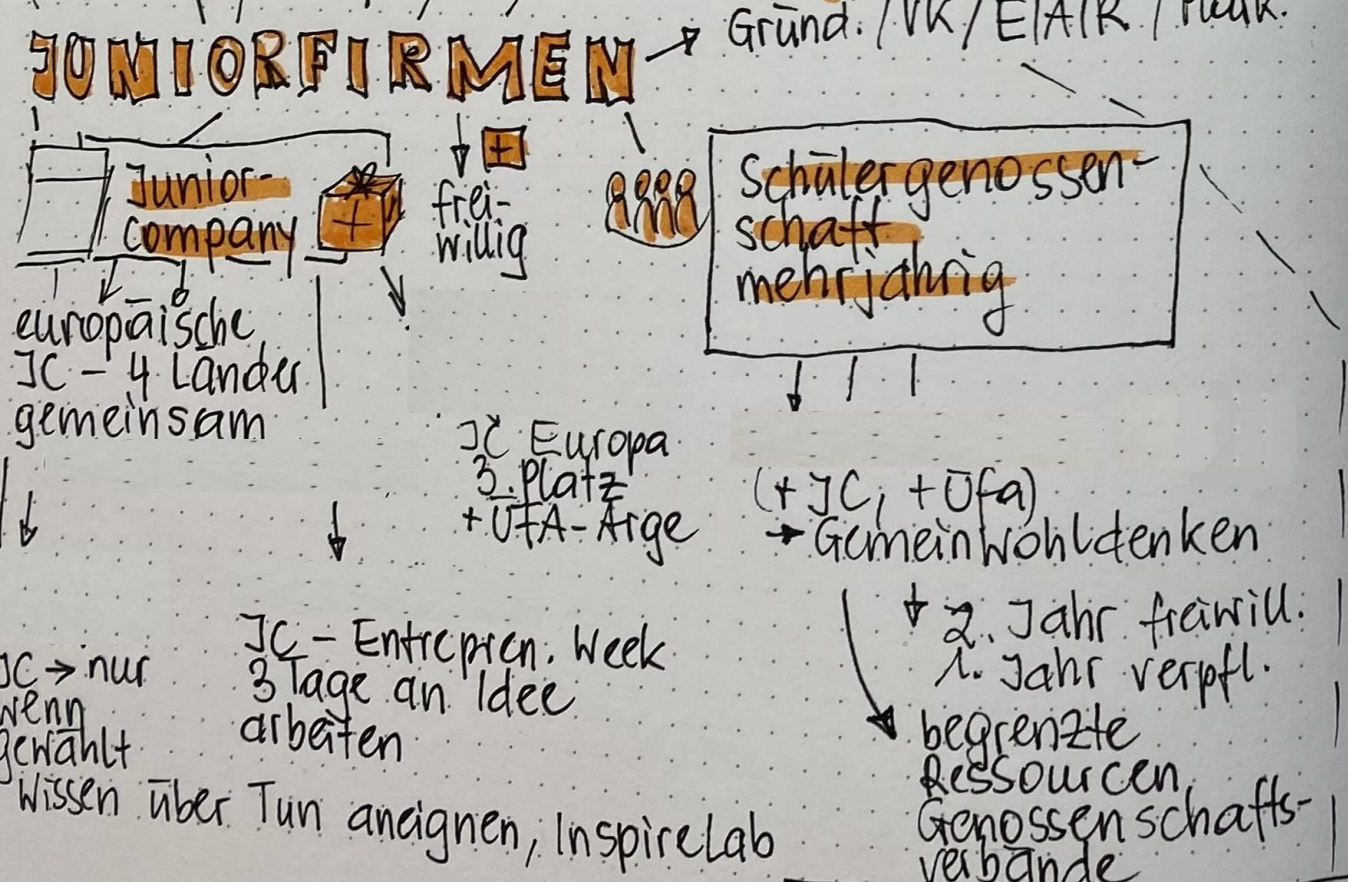 Gründ. / VK / E/A/R /
JUNIORFIRMEN
+
Junior-
company
+
frei-
willig
Schülergenossen-
schaft
mehrjährig
europäische
JC - 4 Länder
gemeinsam
JC Europa
3. Platz
+ ÜFA-Arge
(+ JC, + Üfa)
→ Gemeinwohldenken
2. Jahr freiwill.
1. Jahr verpfl.
begrenzte
Ressourcen,
Genossenschafts-
verbände
JC → nur
wenn
gewählt
JC - Entrepren. Week
3 Tage an Idee
arbeiten
Wissen über Tun aneignen, InspireLab